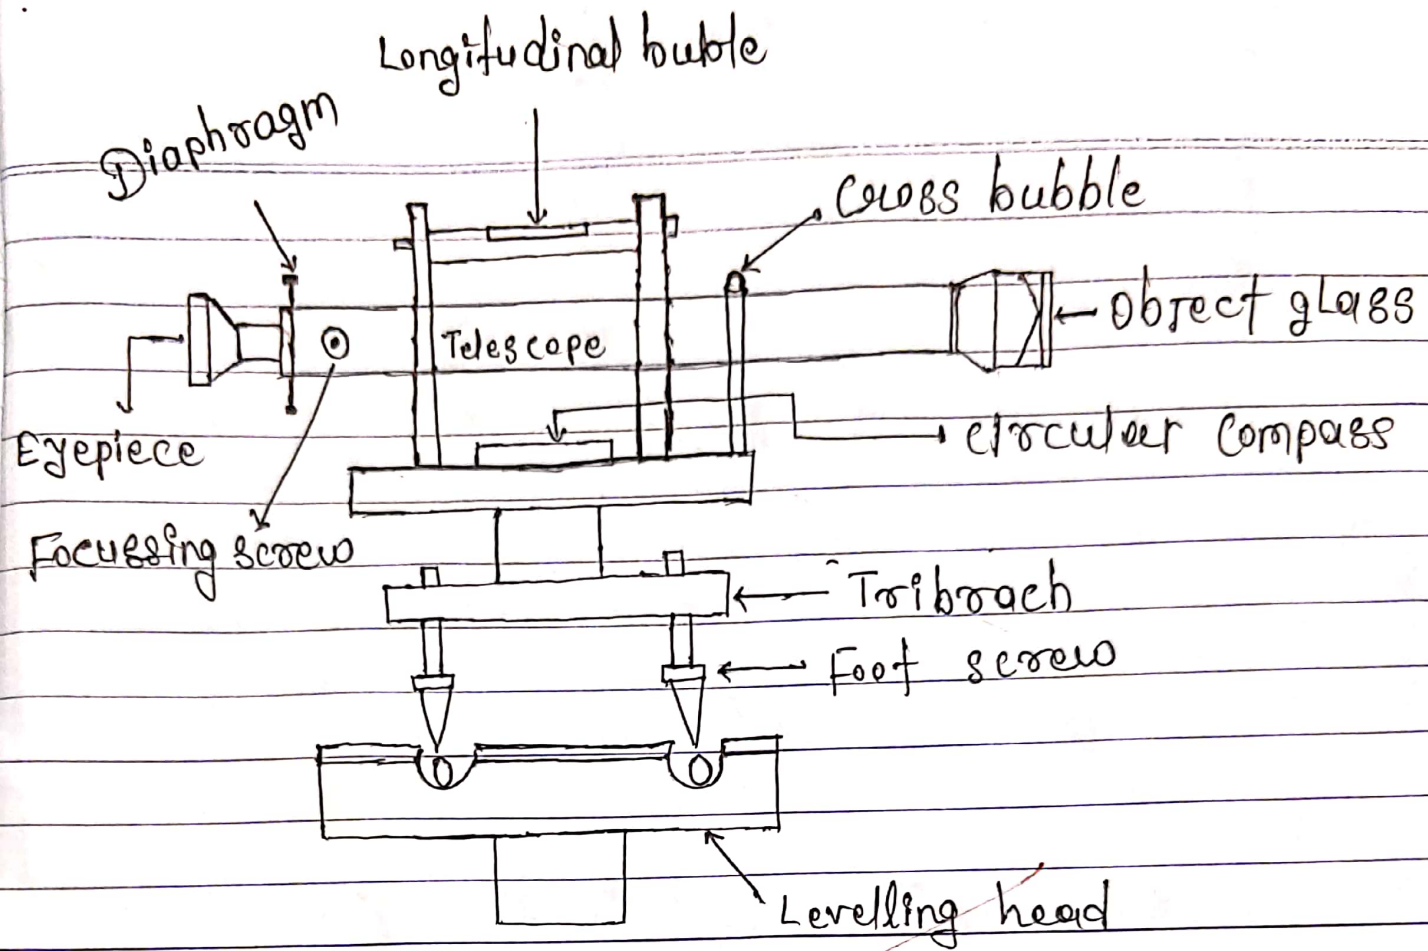 Longitudinal buble
Diaphragm
Cross bubble
Object glass
Telescope
Eyepiece
Circular Compass
Focussing screw
Tribrach
Foot screw
Levelling head